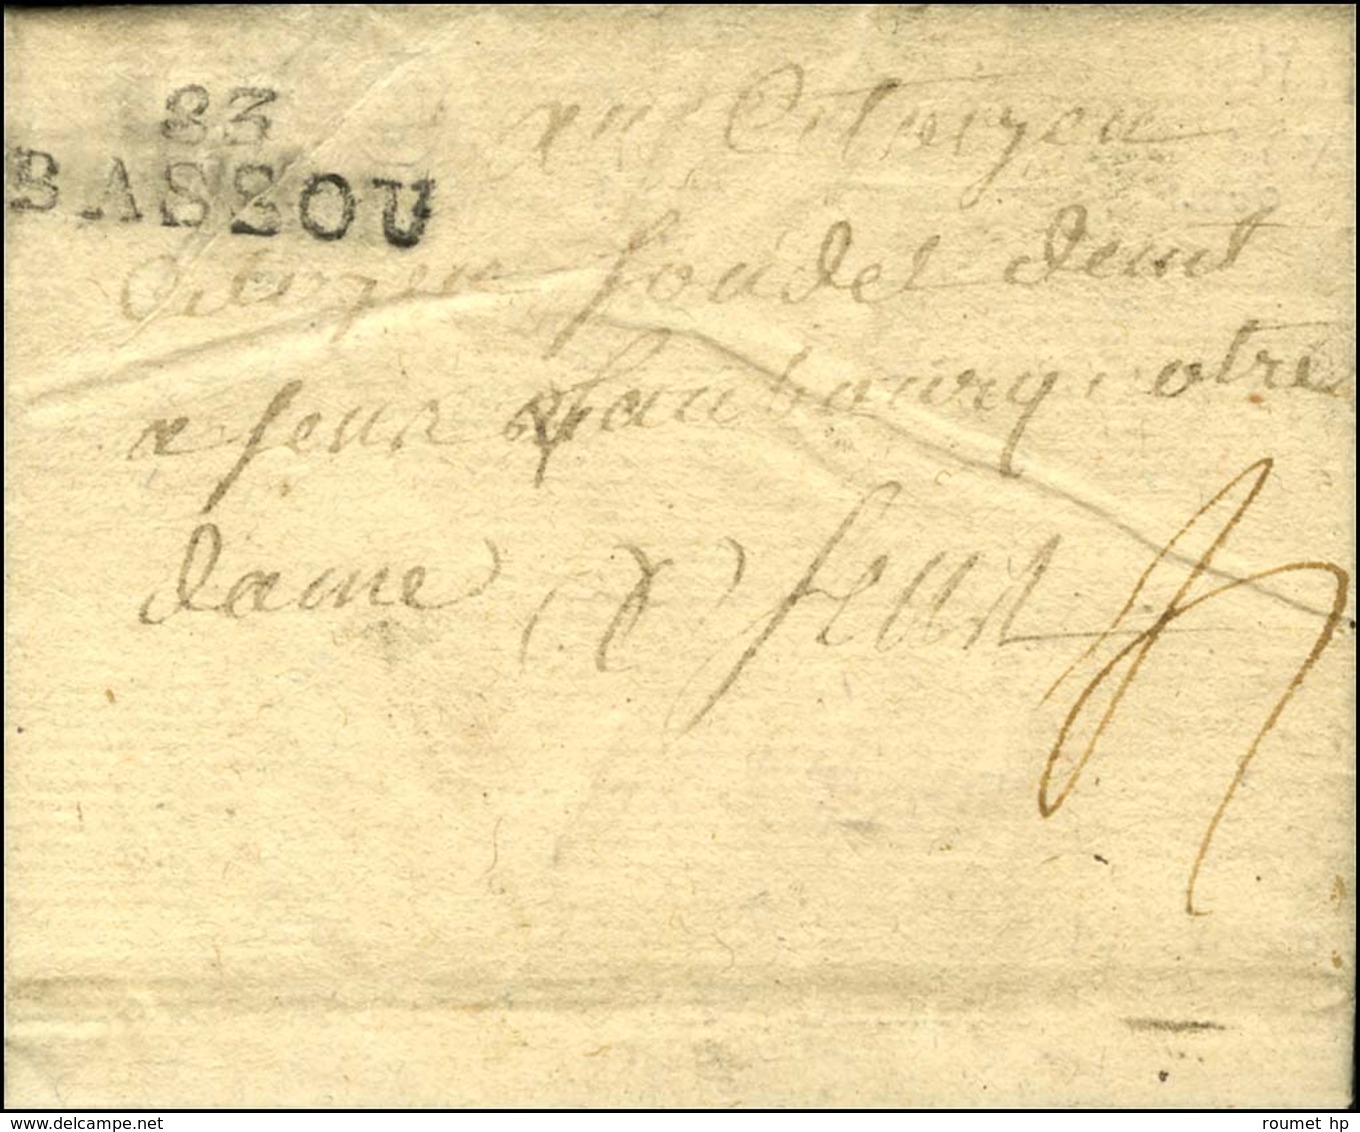 83
BASSOU
au Citoyen
Citoyen soudet demt
a sens faubourg notre
dame a sens
delcampe.net
roumet hp